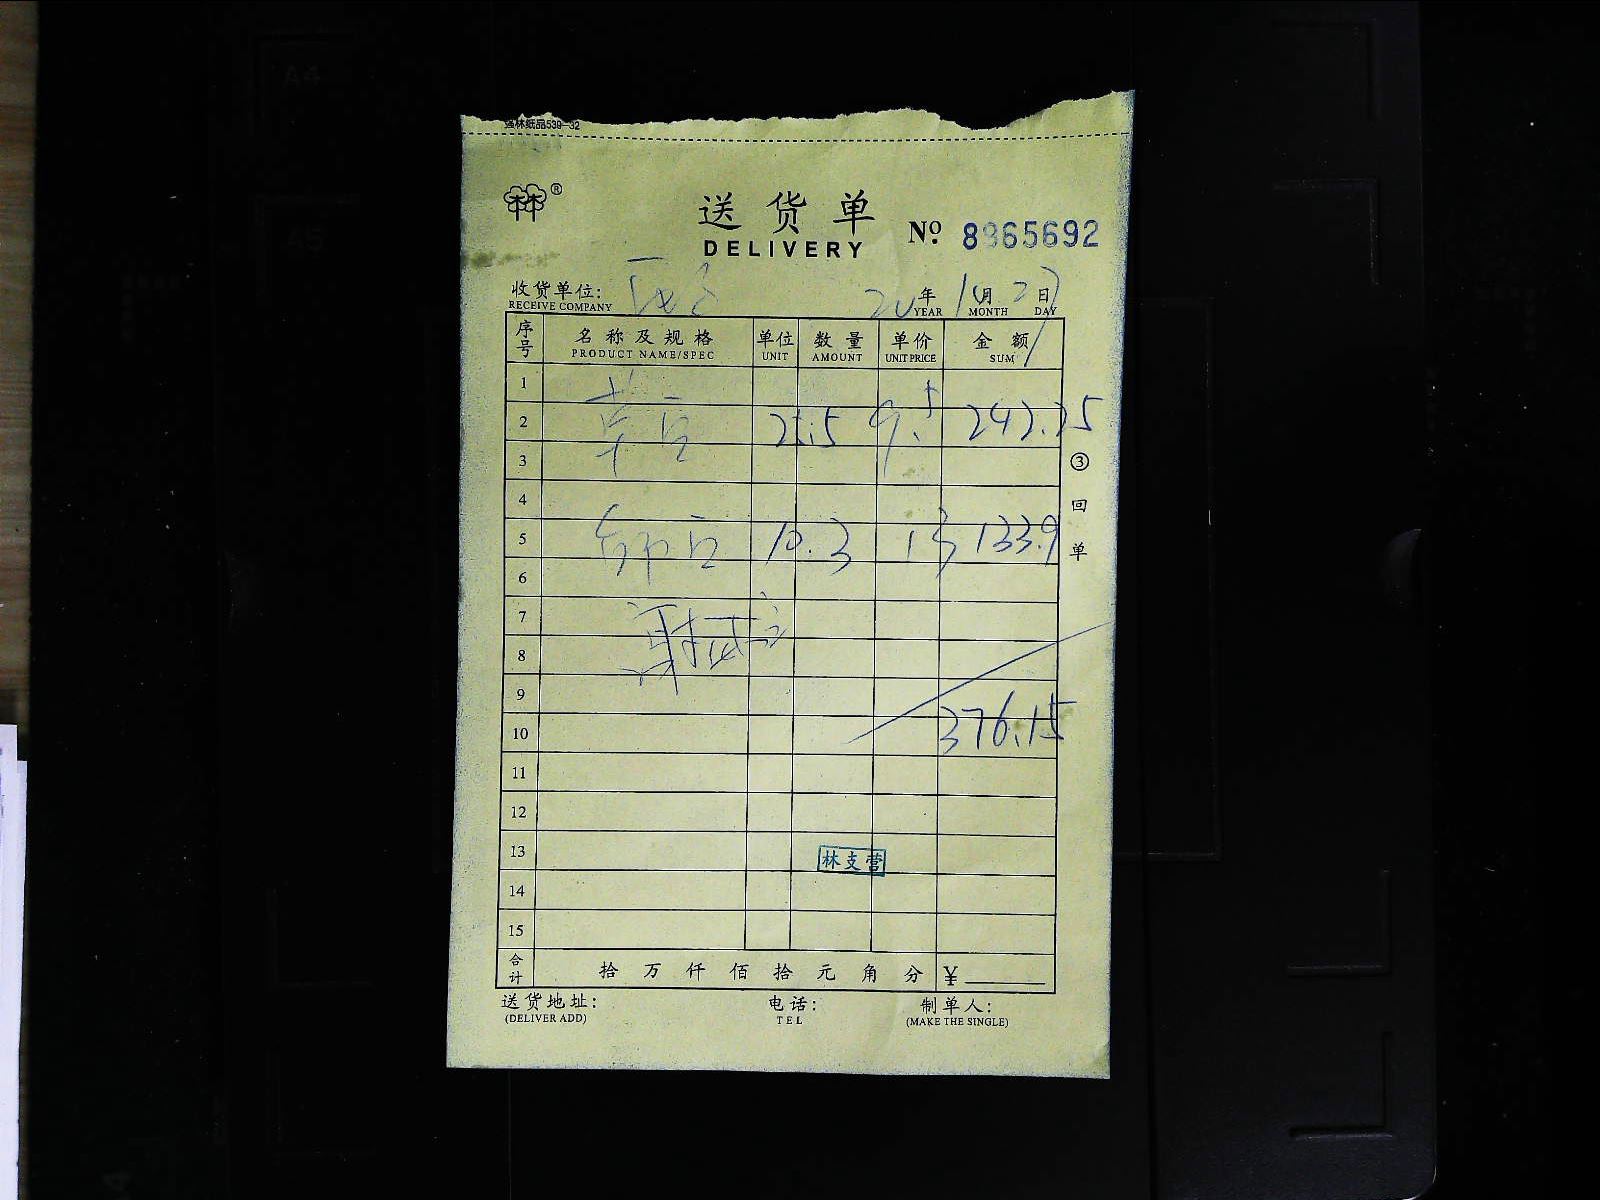 强林纸品539-32
林®
送货单
DELIVERY
No. 8965692
收货单位:
RECEIVE COMPANY
20 年 月 日
YEAR MONTH DAY
序号 名称及规格 单位 数量 单价 金额
PRODUCT NAME/SPEC UNIT AMOUNT UNIT PRICE SUM
1
2 25.5 9.5 242.25
3
4
5 10.3 13 133.9
6
7
8
9
10 376.15
11
12
13 林支营
14
15
合计 拾 万 仟 佰 拾 元 角 分 ¥
③回单
送货地址: 电话: 制单人:
(DELIVER ADD) TEL (MAKE THE SINGLE)